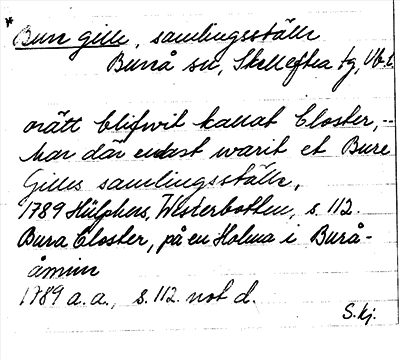 * Bure gille, samlingsställe
Bureå sn, Skellefteå tg, Vb. l.
orätt blifwit kallat Closter, --
har där endast warit et Bure
Gilles samlingsställe,
1789 Hülphers, Westerbotten, s. 112.
Bura Closter, på en Holma i Bureå-
åminne
1789 a.a., s. 112. not d.
S. kj.